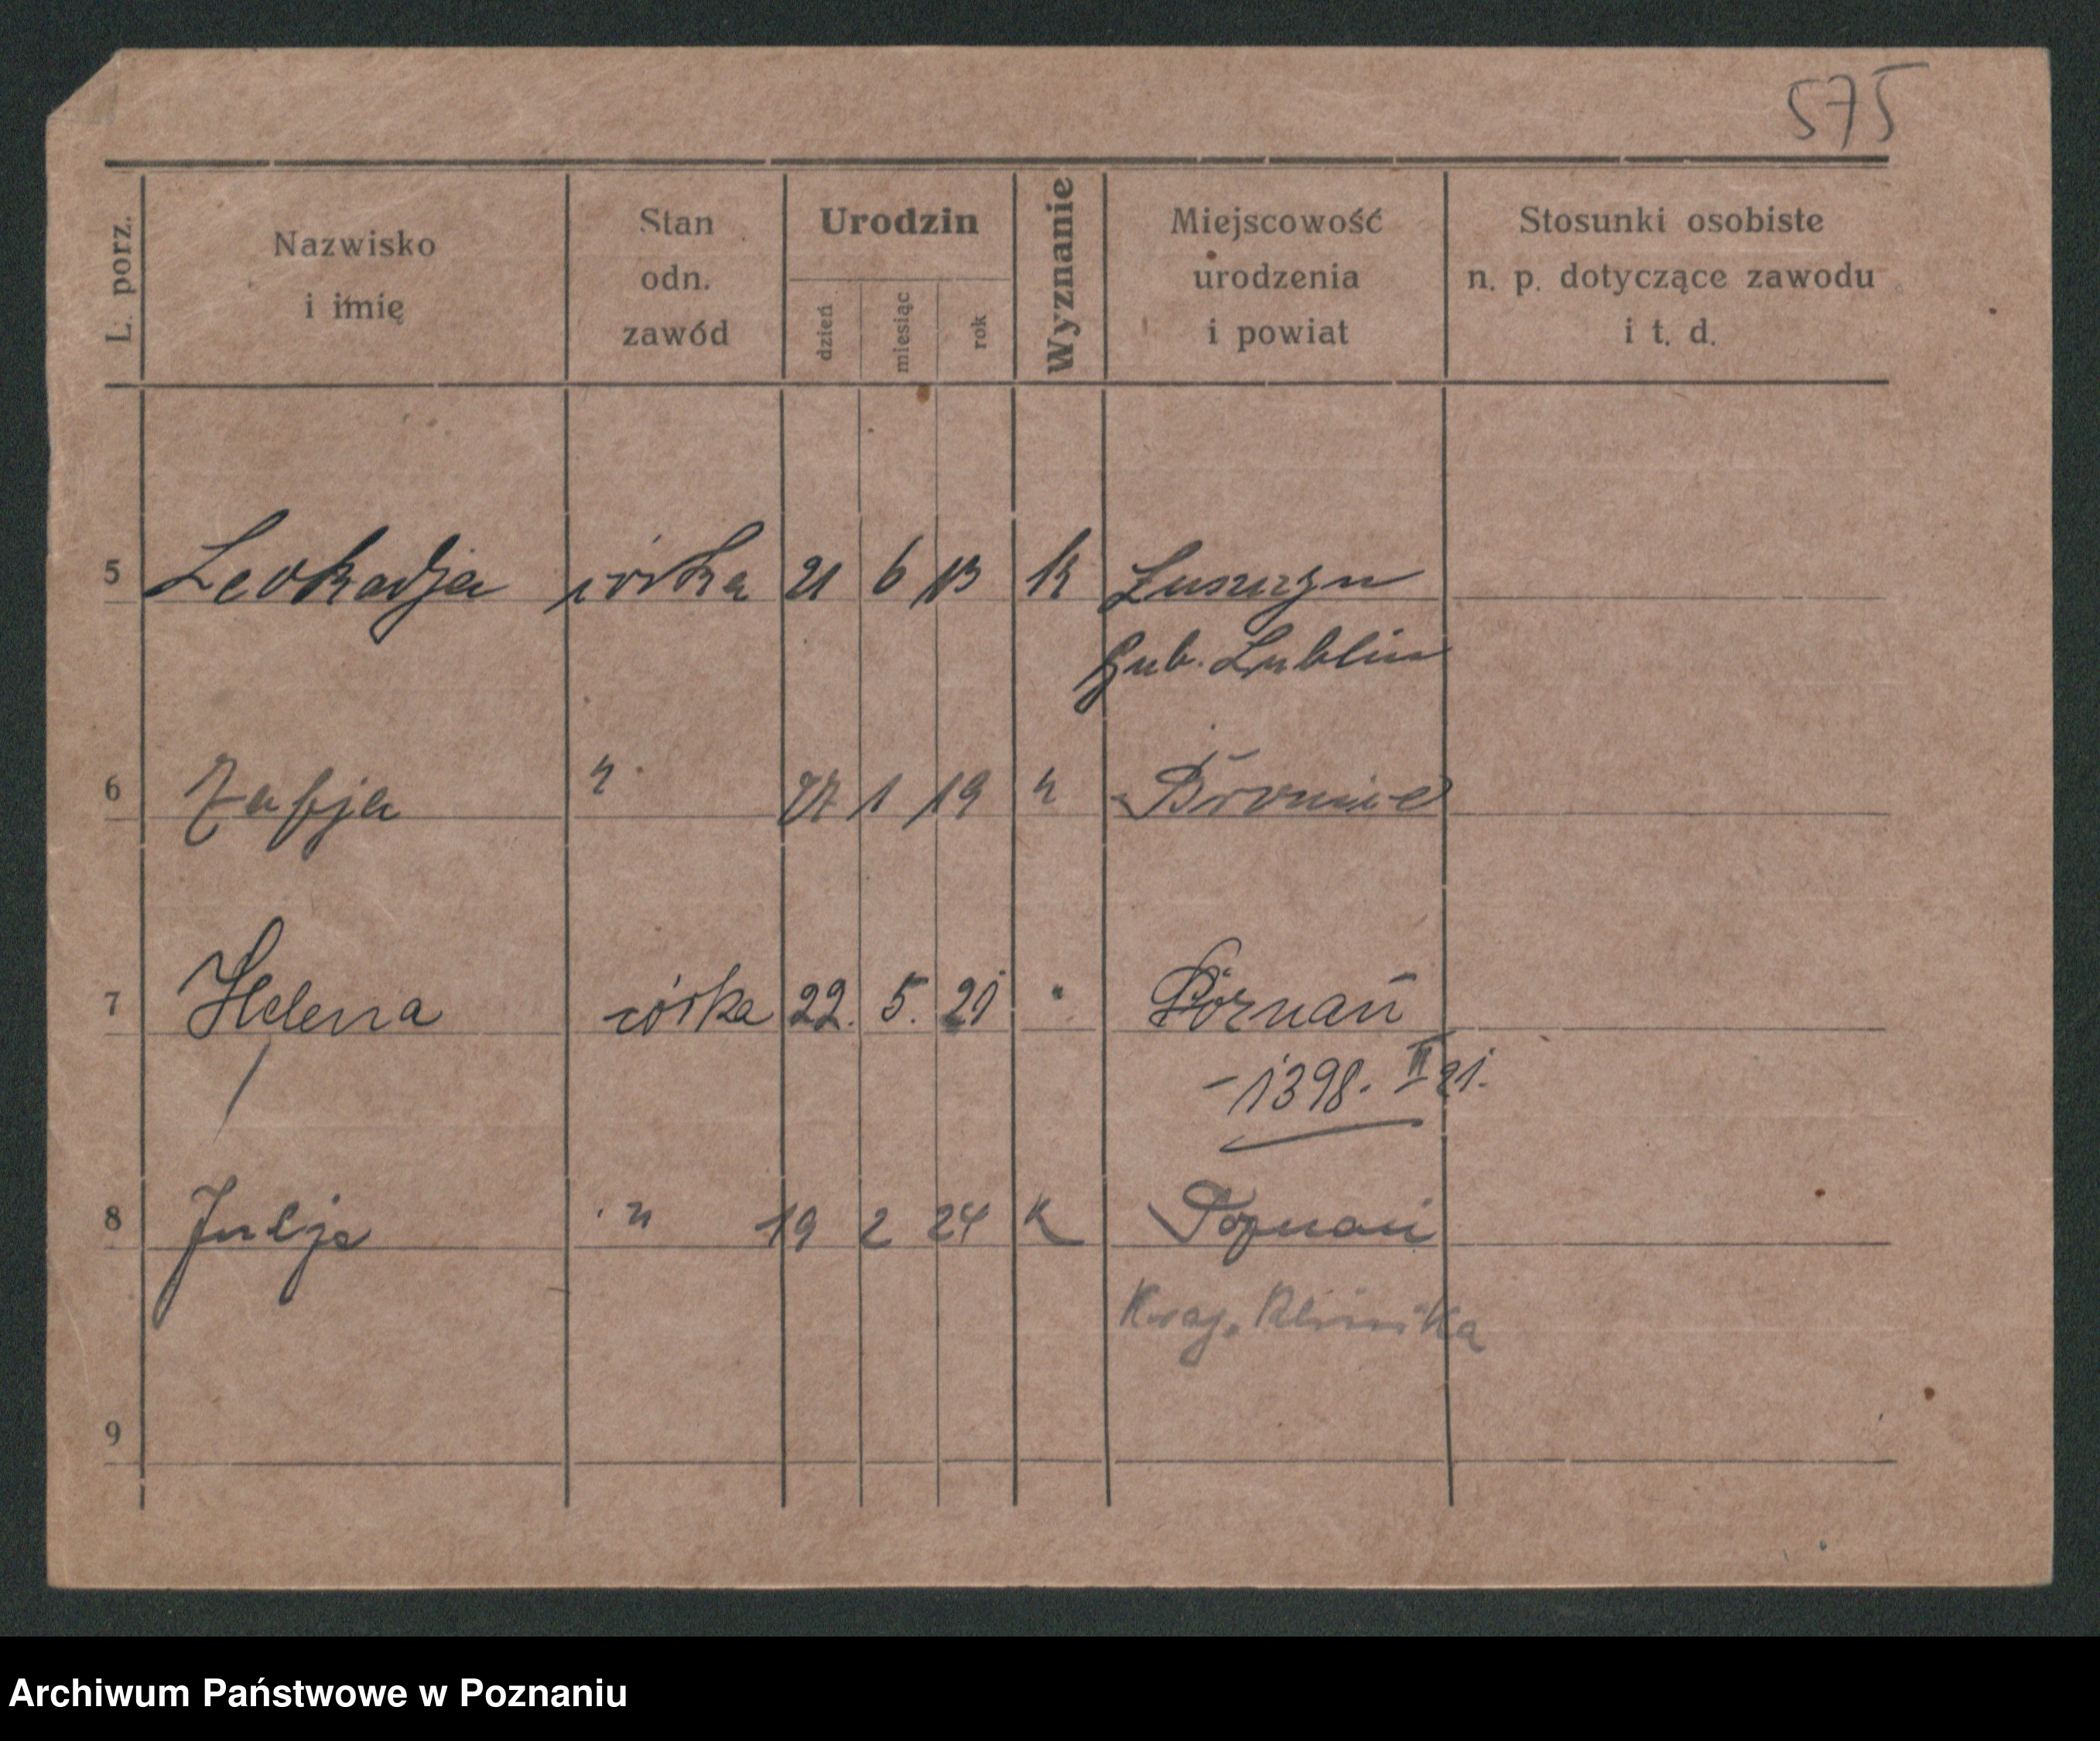 575
L. porz.
Nazwisko
i imię
Stan
odn.
zawód
Urodzin
dzień
miesiąc
rok
Wyznanie
Miejscowość
urodzenia
i powiat
Stosunki osobiste
n. p. dotyczące zawodu
i t. d.
5 Leokadja córka 21 6 13 k
Gub. Lublin
6 " 1 19 "
7 Helena córka 22. 5. 21 " Poznań
- 1398. II 21.
8 Julja " 19 2 24 K Poznań
Kraj. Klinika
9
Archiwum Państwowe w Poznaniu